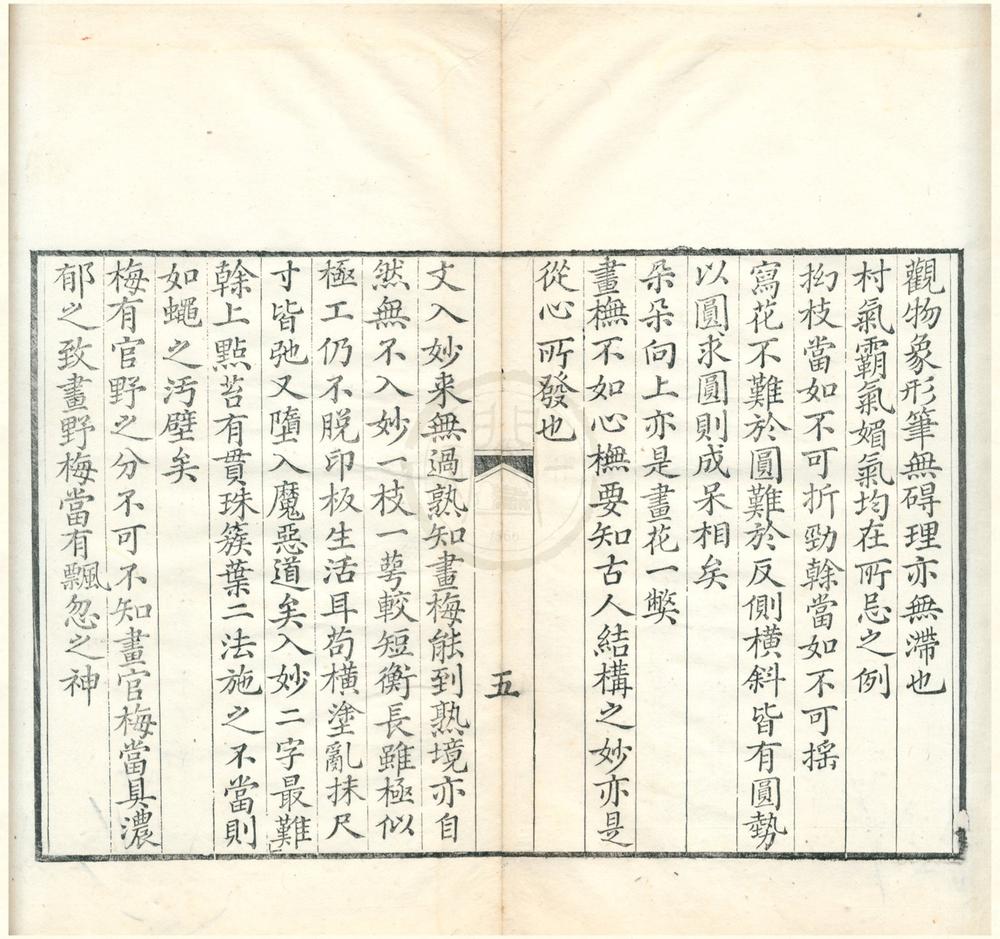 觀物象形筆無碍理亦無滯也
村氣霸氣媚氣均在所忌之例
拗枝當如不可折勁榦當如不可搖
寫花不難於圓難於反側橫斜皆有圓勢
以圓求圓則成呆相矣
朶朶向上亦是畫花一弊
畫橅不如心橅要知古人結構之妙亦是
從心所發也
五
文入妙来無過熟知畫梅能到熟境亦自
然無不入妙一枝一萼較短衡長雖極似
極工仍不脱印板生活耳苟橫塗亂抹尺
寸皆弛又墮入魔惡道矣入妙二字最難
榦上點苔有貫珠簇葉二法施之不當則
如蠅之汚壁矣
梅有官野之分不可不知畫官梅當具濃
郁之致畫野梅當有飄忽之神